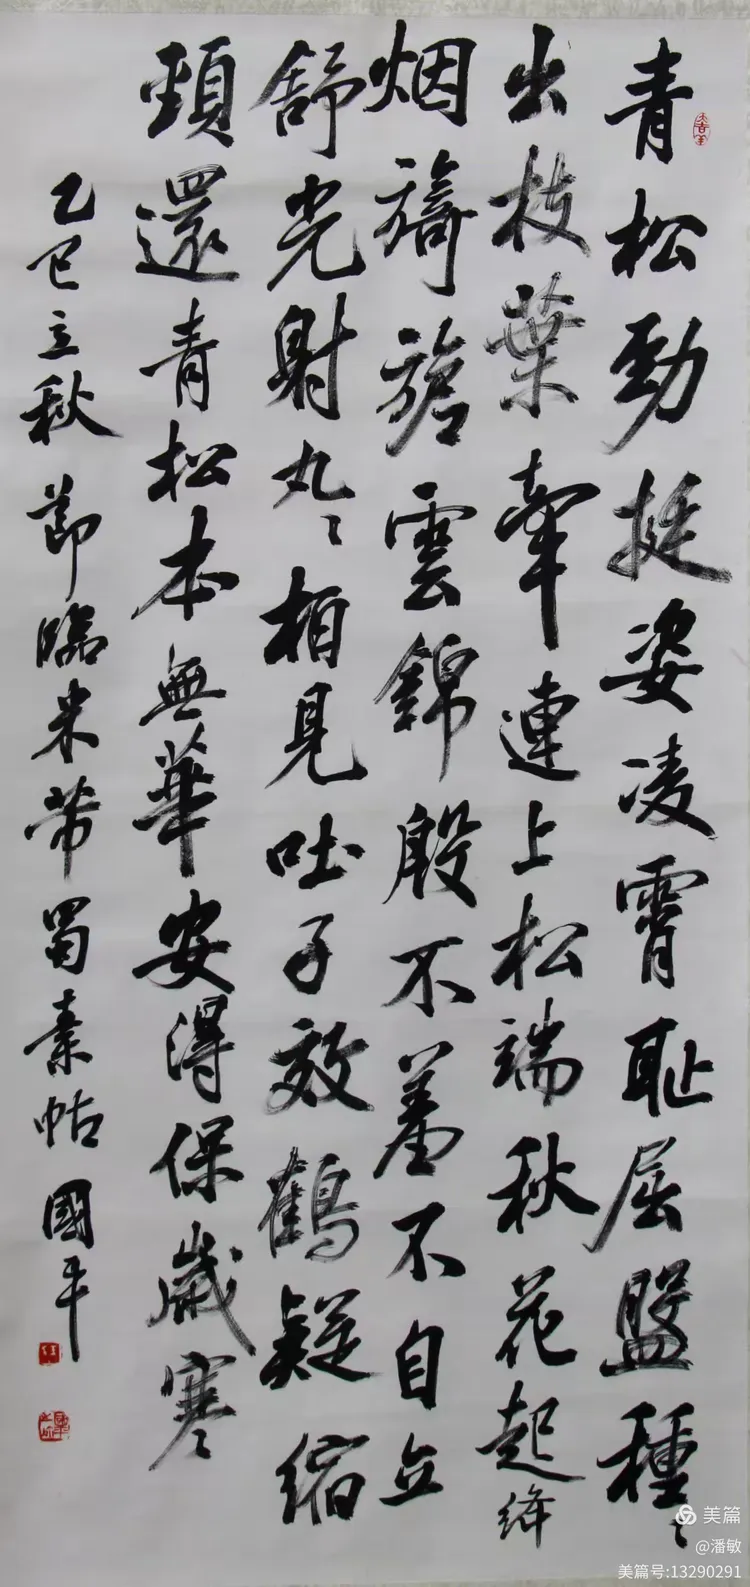 青松勁挺姿凌霄耻屈盤種〻
出枝葉牽連上松端秋花起絳
烟旖旎雲錦殷不羞不自立
舒光射丸〻柏見吐子效鶴疑縮
頸還青松本無華安得保歲寒〻
乙巳立秋節臨米芾蜀素帖國平
美篇
@潘敏
美篇号:13290291